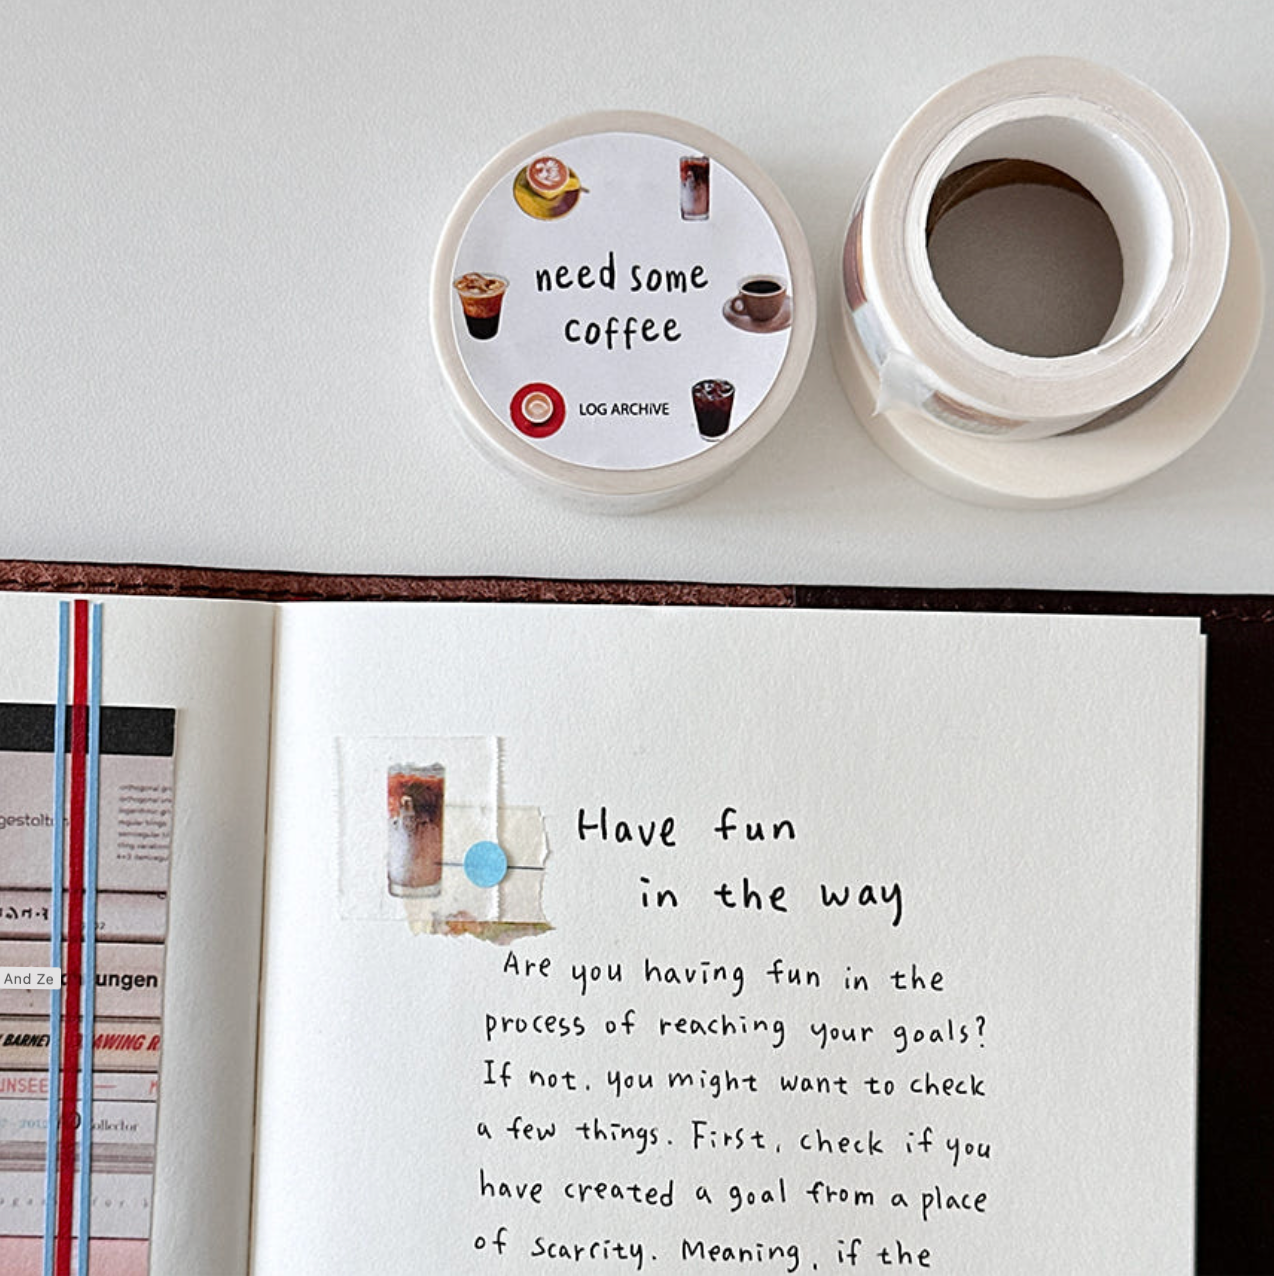 need some
coffee
LOG ARCHIVE
Have fun
in the way
Are you having fun in the
process of reaching your goals?
If not, you might want to check
a few things. First, check if you
have created a goal from a place
of scarcity. Meaning, if the
And Ze
ungen
BARNE
AWING R
UNSEE
ollector